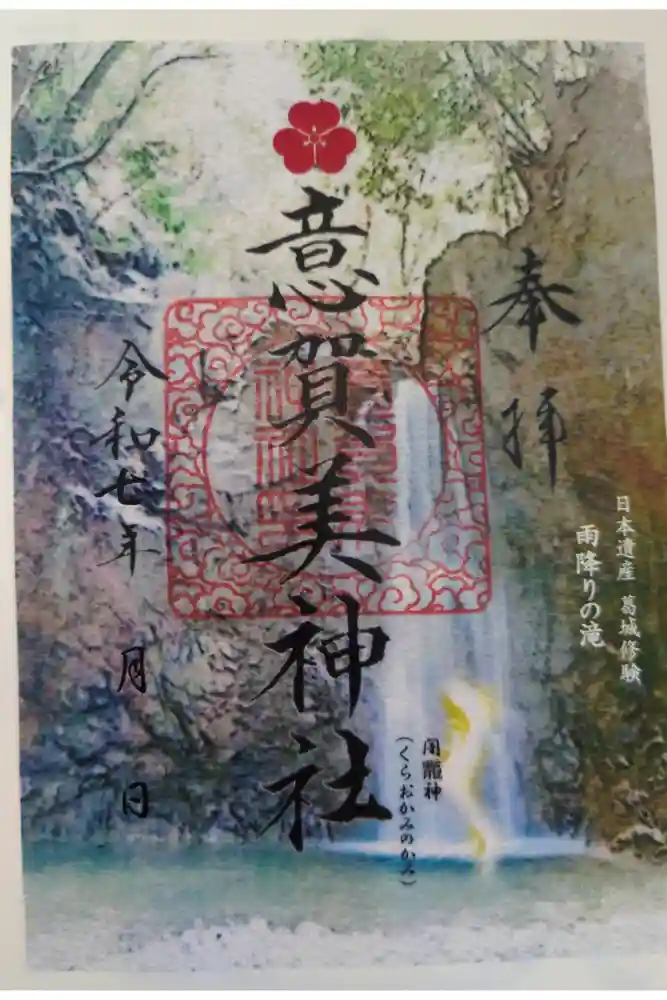 奉拝
日本遺産 葛城修験
雨降りの滝
意賀美神社
闇龗神
(くらおかみのかみ)
令和七年 月 日